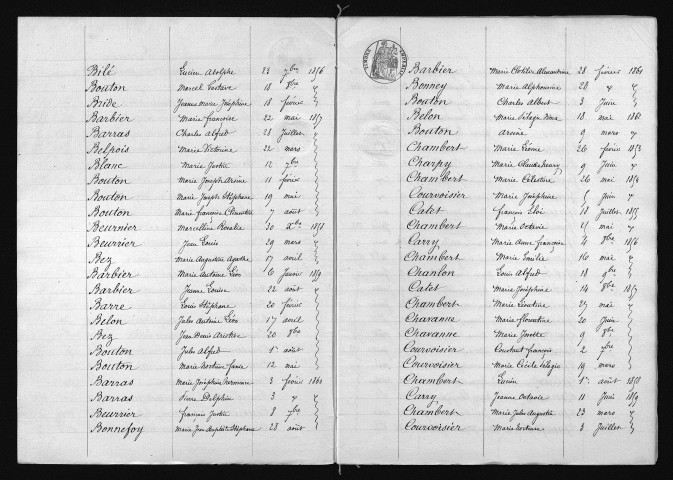 Bilé Lucien Adolphe 23 7bre 1856
Bouton Marcel Gustave 18 8bre "
Bride Jeanne Marie Joséphine 18 février "
Barbier Marie françoise 22 mai 1857
Barras Charles Alfred 28 Juillet "
Belpois Marie Victorine 22 mars "
Blanc Marie Justin 12 7bre "
Bouton Marie Joseph Arsène 11 février "
Bouton Marie Joseph Stéphane 19 mai "
Bouton Marie françoise Clémentine 7 août "
Beurnier Marcelline Rosalie 20 Xbre 1858
Beurrier Jean Louis 29 mars "
Bez Marie Augustine Agathe 17 avril "
Barbier Marie Antoine Léos 6 Janvier 1859
Barbier Jeanne Louise 22 août "
Barre Louis Stéphane 20 février "
Belon Jules Antoine Léos 17 avril "
Bez Jean Denis Aristide 20 8bre "
Bouton Jules Alfred 1er août "
Bouton Marie 12 mai "
Barras Marie Joséphine 3 février 1860
Barras Delphin 3 " "
Beurrier françois Justin 8 7bre "
Bonnefoy Marie Jean Baptiste Stéphane 28 août "
TIMBRE IMPERIAL
Barbier Marie Clotilde Alexandrine 28 février 1861
Bonney Marie Alphonsine 28 " "
Bouton Charles Albert 3 Juin "
Belon Marie Pélagie 18 mai 1862
Bouton Arsène 9 mars "
Chambert Marie Léonie 26 février 1853
Charpy Marie Claude 9 Juin "
Chambert Marie Célestine 26 mai 1854
Courvoisier Marie Joséphine 5 Juin "
Catet françois Eloi 18 Juillet 1855
Chambert Marie Octavie 21 mai "
Carry Marie Anne francoise 4 8bre 1856
Chambert Marie Emilie 16 mai "
Chanlon Louis Alfred 18 9bre "
Catet Marie Joséphine 14 8bre 1857
Chambert Marie Léontine 25 mai "
Chavanne Marie florentine 20 Juin "
Chavanne Marie Josette 9 8bre "
Courvoisier Constant françois 2 7bre "
Courvoisier Marie Cécile Pélagie 19 mars "
Chambert Lucien 1er août 1858
Carry Jeanne Octavie 11 Juin 1859
Chambert Marie Jules Augustin 23 mars "
Courvoisier Marie 3 Juillet "